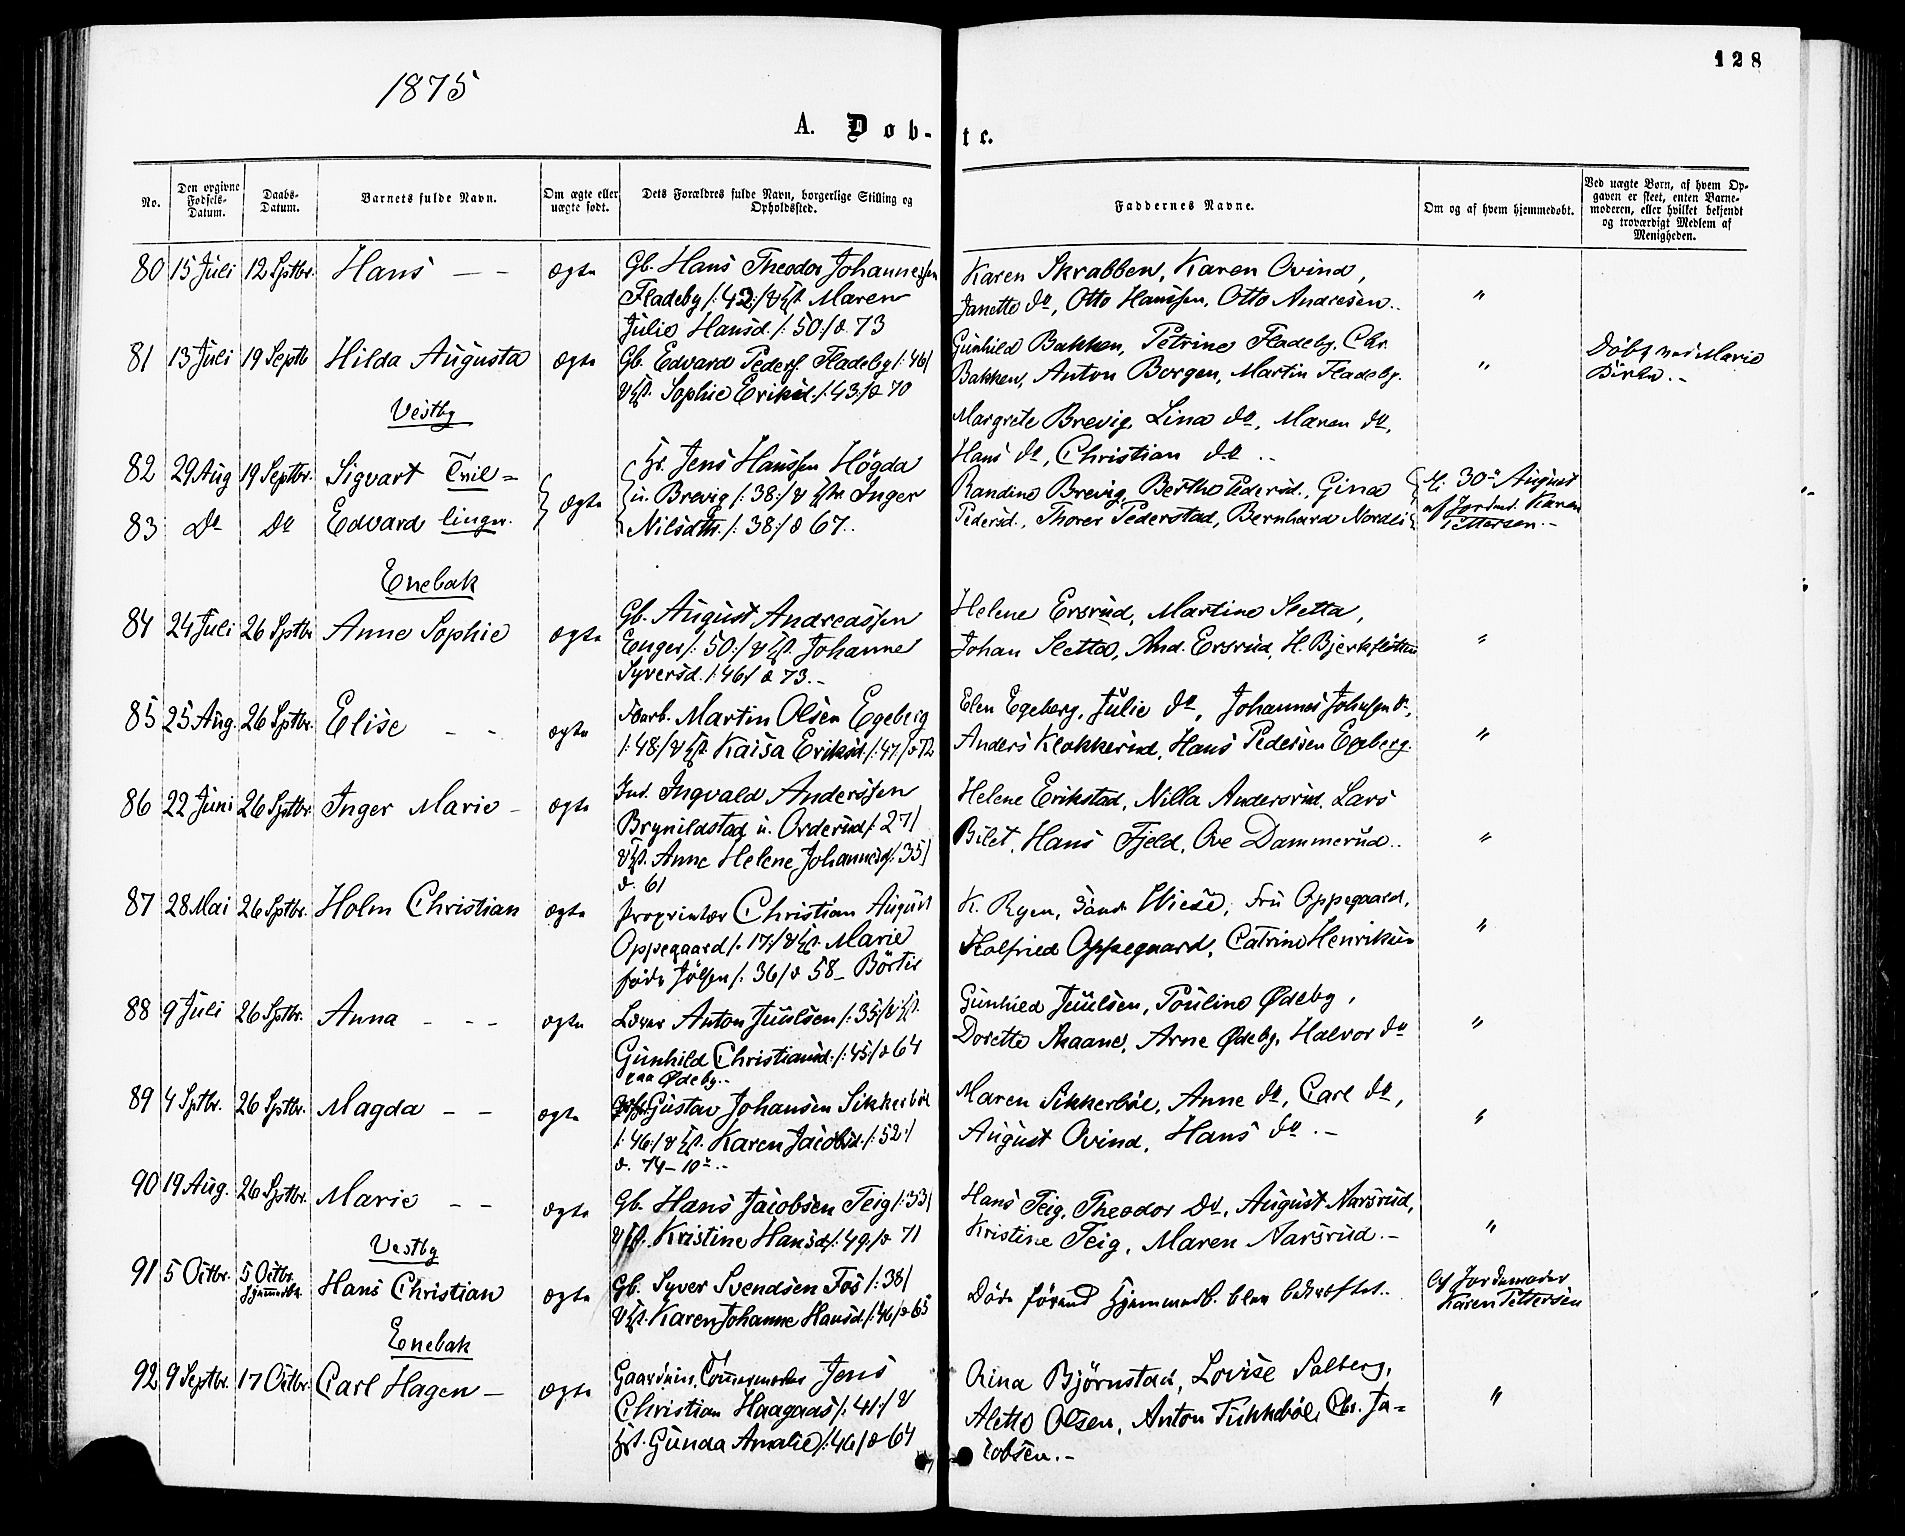 1875
128
A. Døb-
te.
No.
Den opgivne Fødsels-Datum.
Daabs-Datum.
Barnets fulde Navn.
Om ægte eller uægte født.
Dets Forældres fulde Navn, borgerlige Stilling og Opholdssted.
Faddernes Navne.
Om og af hvem hjemmedøbt.
Ved uægte Born, af hvem Op-
gaven er skeet, enten Barne-
moderen, eller hvilket bekjendt
og troværdigt Medlem af
Menigheden.
80 15 Juli 12 Sptbr. Hans – – ægte Gb. Hans Theodor Johannessen
Fladeby /: 42 :/ & Hst. Maren
Julie Hansd. /: 50 :/ d. 73
Karen Skrabben, Karen Ovind,
Janette do, Otto Hanssen, Otto Andresen.. "
81 13 Juli 19 Septb Hilda Augusta ægte Gb. Edvard Peders. Fladeby /: 46/
& Hst. Sophie Eriksd. /: 43 :/ d. 70
Gunhild Bakken, Petrine Fladeby, Chr.
Bakken, Anton Borgen, Martin Fladeby. "
Døbt ved Marie
Vestby
82 29 Aug 19 Septbr. Sigvart Tvil-
83 do do Edvard linger. ægte
Hr. Jens Hanssen Högda
u. Brevig /: 38 :/ & Hst. Inger
Nilsdtr. /: 38 :/ d. 67..
Margrete Brevig, Lina do, Maren do,
Hans do, Christian do ..
Randine Brevig, Berthe Pedersd., Gina
Pedersd., Thorer Pederstad, Bernhard Nordli
30 August
af Jordm. Karen
Pettersen.-
Enebak
84 24 Juli 26 Sptbr Anne Sophie ægte Gb. August Andreassen
Enger /: 50 :/ & Hst. Johanne
Syversd. /: 46/ d. 73.-
Helene Ersrud, Martine Sletta,
Johan Sletta, And. Ersrud, H. Bjerkfløtten "
85 25 Aug. 26 Sptbr. Elise – – ægte Forb. Martin Olsen Egeberg
/: 48 :/ & Hst. Kaisa Eriksd. /: 47/ d. 72
Elen Egeberg, Julie do, Johannes Johnsen do,
Anders Klokkerud, Hans Pedersen Egeberg. "
86 22 Juni 26 Sptbr. Inger Marie – ægte Ind. Ingvald Anderssen
Brynildstad u. Orderud /: 27/
& Hst. Anne Helene Johannesd. /: 35/
d. 61
Helene Erikstad, Nilla Andersrud, Lars
Bilet, Hans Fjeld, Ove Dammerud.. "
87 28 Mai 26 Sptbr. Holm Christian ægte Proprietær Christian August
Oppegaard /: 17 :/ & Hst. Marie
føde Jølsen /: 36/ d. 58 – Börter
K. Ryen, Wiese, Fru Oppegaard,
Halfried Oppegaard, Catrine Henriksen "
88 9 Juli 26 Sptbr. Anna – – – ægte Lærer Anton Juulsen /: 35 :/ & Hst.
Gunhild Christiansd. /: 45/ d. 64
paa Ødeby..
Gunhild Juulsen, Pouline Ødeby,
Dorette Maane, Arne Ødeby, Halvor do "
89 4 Sptbr. 26 Sptbr. Magda – – ægte Gustav Johansen Sikkerböl
/: 46 :/ & Hst. Karen Jacobsd. /: 52 :/
d. 74 – 10..
Maren Sikkerböl, Anne do, Carl do,
August Ovind, Hans do .- "
90 19 Aug. 26 Sptbr. Marie – – ægte Gb. Hans Jacobsen Teig /: 33/
& Hst. Kristine Hansd. /: 49 :/ d. 71
Hans Teig, Theodor do, August Narsrud,
Kristine Teig, Maren Narsrud.- "
Vestby
91 5 Octbr. 5 Octbr. hjemmedbt. Hans Christian ægte Gb. Syver Svendsen Fos /: 38/
& Hst. Karen Johanne Hansd. /: 46/ d. 65
Døde førend Hjemmedb. blev bekræftet..
Af Jordemoder
Karen Pettersen
Enebak
92 9 Septbr. 17 Octbr. Carl Hagen – ægte Gaardeier, Jens
Christian Haagaas /: 41 :/ &
Hst. Gunda Amalie /: 46/ d. 64
Rina Bjørnstad, Lovise Solberg,
Alette Olsen, Anton Tukkeböl, Chr. Ja-
cobsen.- "